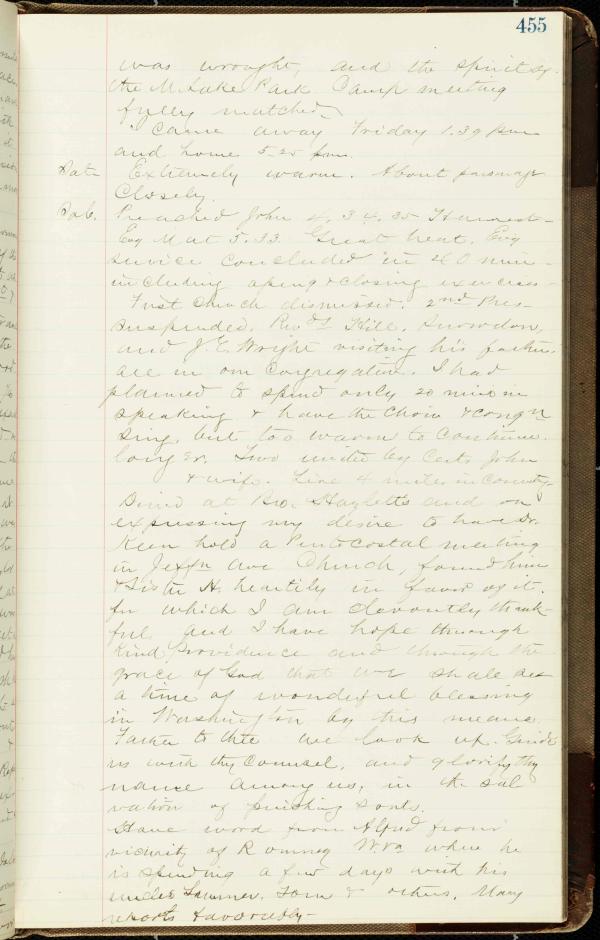 455
was wrought, and the spirit of
the M. Lake Park Camp meeting
fully matched.
Came away Friday 1.39 pm
and home 5.25 pm.
Sat Extremely warm. About parsonage
closely.
Sab. Preached John 4, 34, 35 Harvest-
Evg M at 5.33. Great heat. Evg
service concluded in 40 min-
including openg & closing exercises-
First Church dismissed. 2nd Pres-
suspended. Revds Hill, Snowdon,
and J. E. Wright visiting his father
all in our congregation. I had
planned to spend only 20 min in
speaking & have the choir & congn
sing, but too warm to continue
longer. Two united by Certs John
& wife. Live 4 miles in County.
Dined at Bro. Hazletts and on
expressing my desire to have Dr.
Keen hold a Pentecostal meeting
in Church, found him
& Sister H. heartily in favor of it.
for which I am devoutly thank-
ful, and I have hope through
kind Providence and through the
grace of God that we shall see
a time of wonderful blessing
in Washington by this means.
Father to thee we look up. Guide
us with thy counsel, and glorify thy
name among us, in the sal
vation of perishing souls.
Have word from Alfred from
vicinity of Romney W.Va where he
is spending a few days with his
uncles Tom & others. Mary
reports favorably-